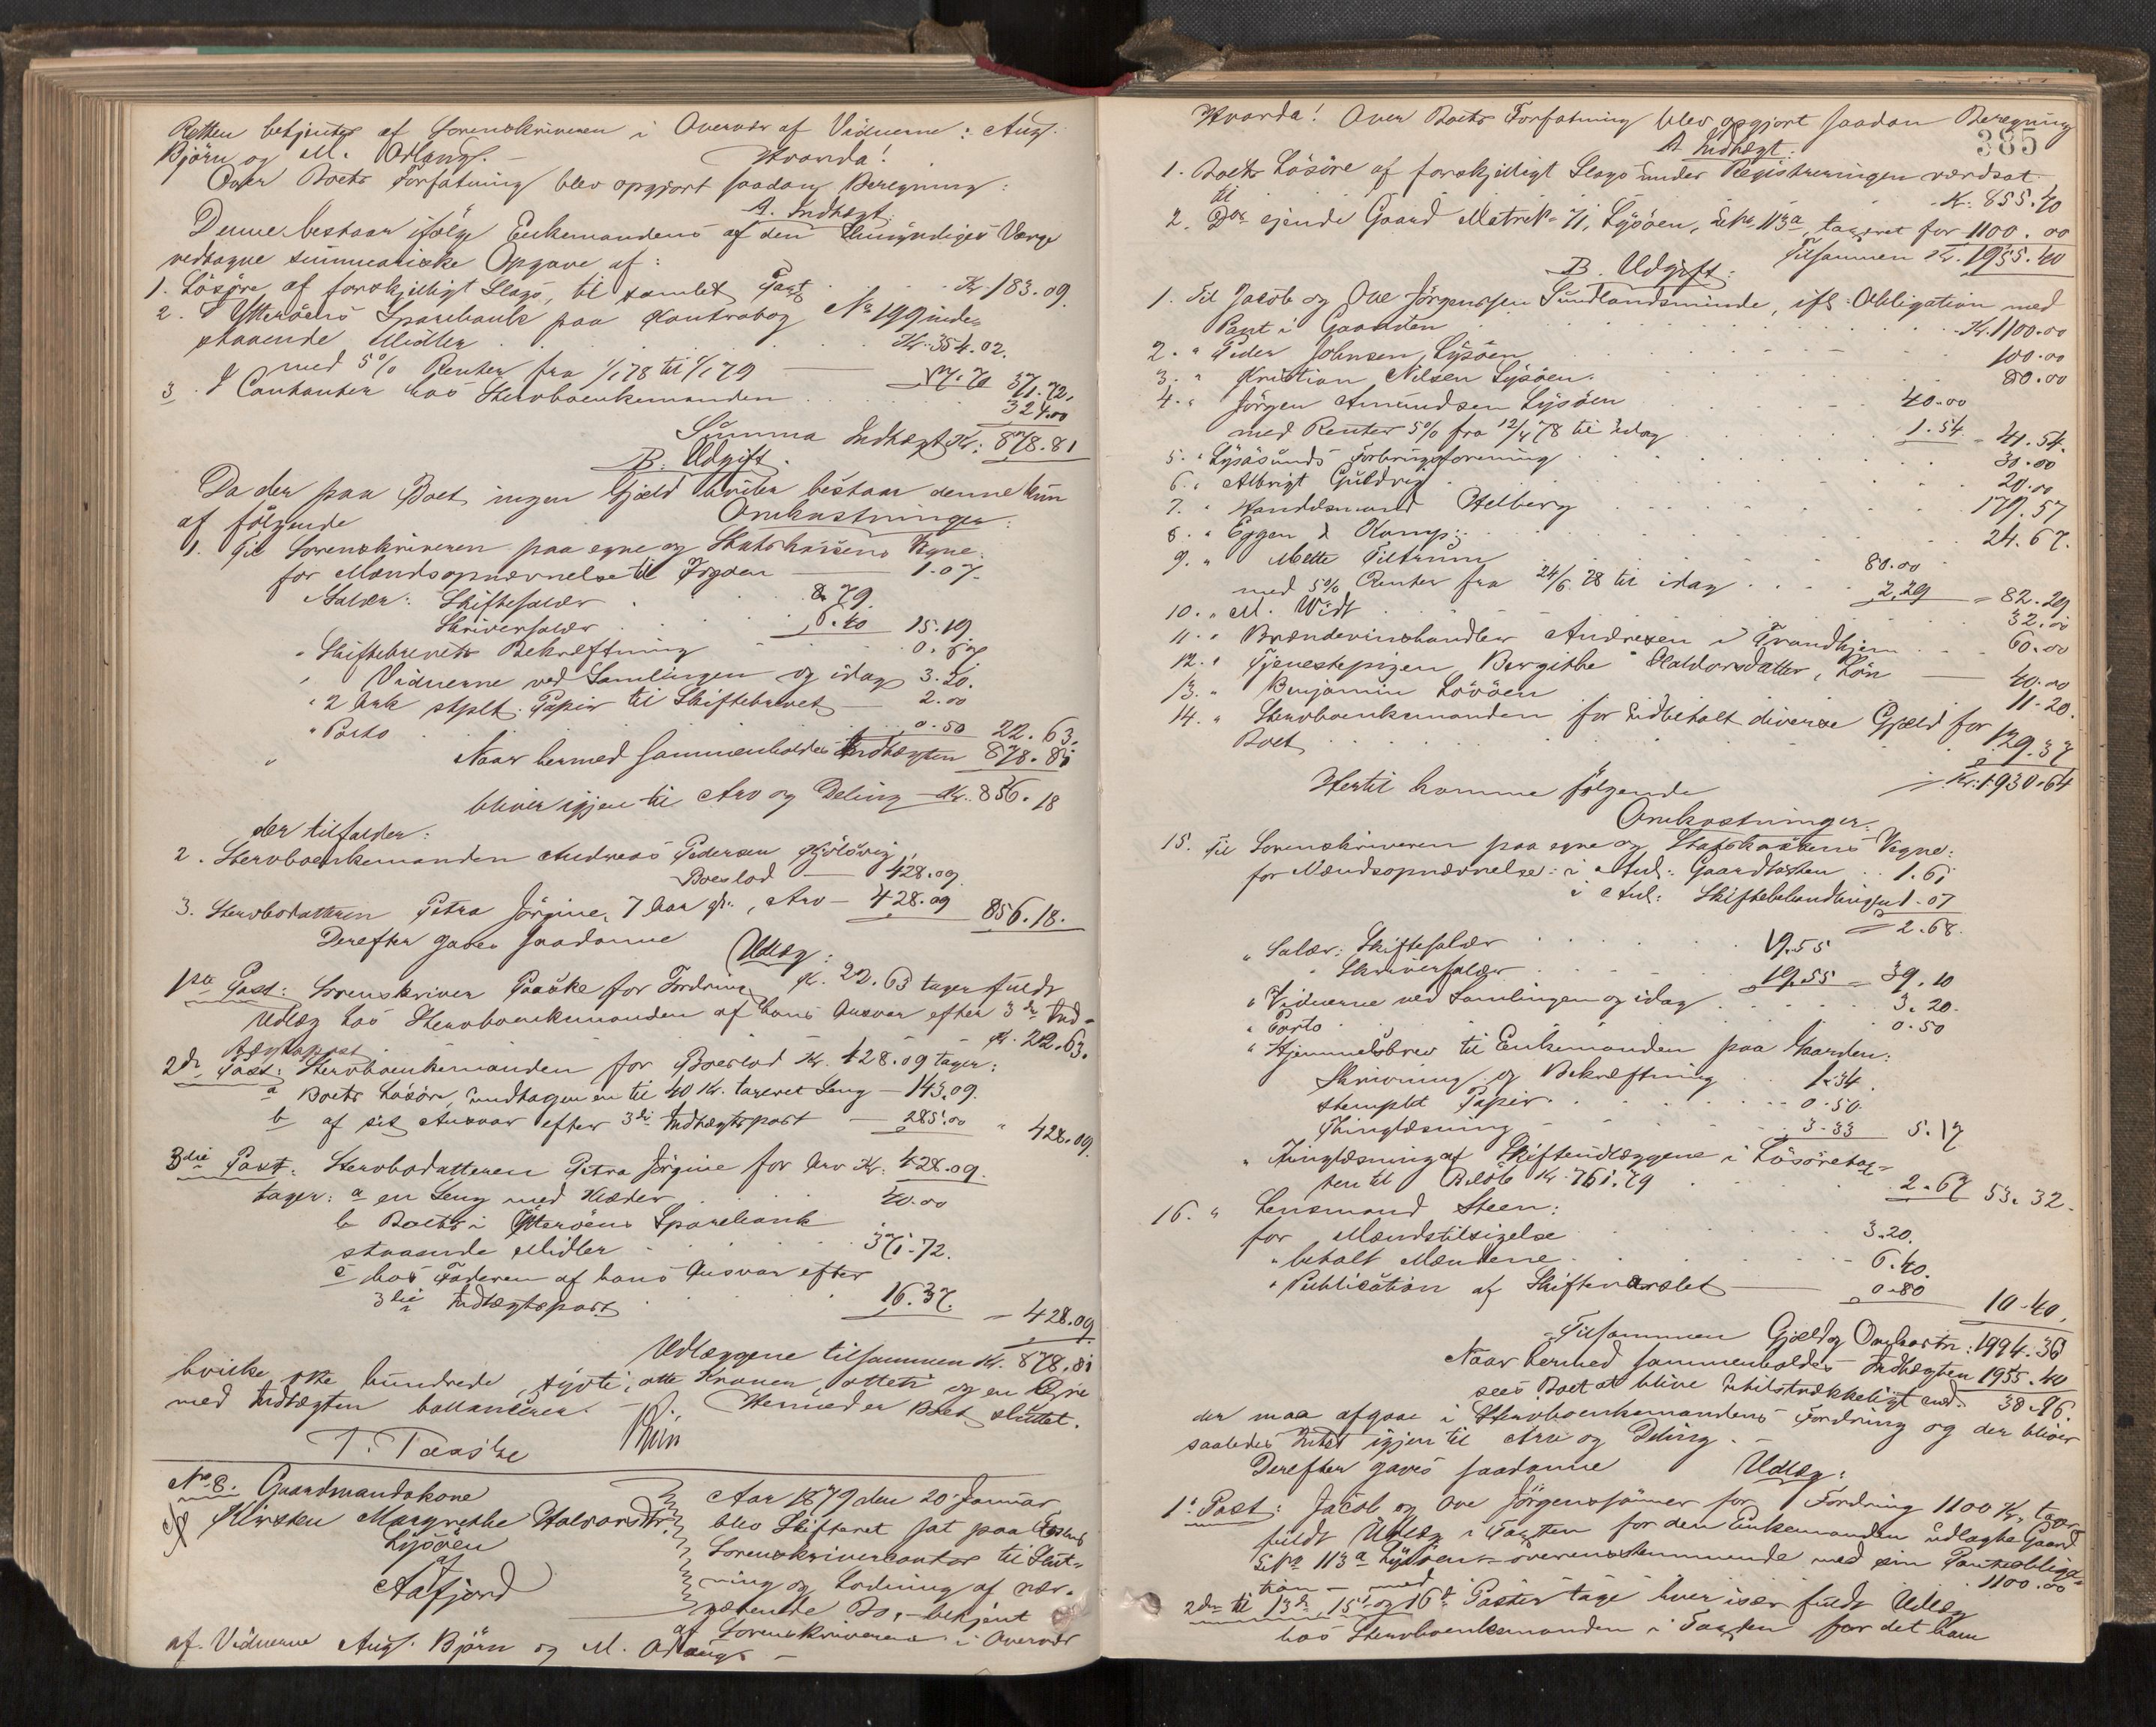 Retten betjentes af Sorenskriveren i Overvær af Vidnerne: Aug.
Bjørn og M. Ørlaug. – Hvorda!
Over Boets Forfatning blev opgjort saadan Beregning:
A. Indtægt.
Denne bestaar ifølge Enkemandens af den Umyndiges Værge
vedtagne summariske Opgave af:
1. Løsøre af forskjelligt Slags, til samlet Taxt Kr. 183.09.
2. I Ytterøens Sparebank paa Kontrabog No 199 inde-
staaende Midler Kr. 354.02.
med 5% Renter fra 1/1 78 til 1/1 79 — 17.70 371.72.
3. I Contanter hos Stervboenkemanden 324.00
Summa Indtægt Kr: 878.81
B. Udgift.
Da der paa Boet ingen Gjæld hviler bestaar denne kun
af følgende Omkostninger:
1. Til Sorenskriveren paa egne og Statskassens Vegne:
for Mændsopnævnelse til Fogden — 1.07.
Salær: Skiftesalær 8.79.
Skriversalær 6.40 15.19
" Skiftebrevets Bekræftning 0.67
" Vidnerne ved Samlingen og idag 3.20.
" 2 Ark stplt. Papir til Skiftebrevet — 2.00
" Porto 0.50 22.63.
" Naar hermed sammenholdes Indtægten 878.81
bliver igjen til Arv og Deling – Kr. 856.18
der tilfalder:
2. Stervboenkemanden Andreas Pedersen
Boeslod — 428.09
3. Stervbodatteren Petra Jörgine, 7 Aar gl., Arv – 428.09 856.18.
Derefter gaves saadanne Udlæg:
1ste Post: Sorenskriver Paaske for Fordring Kr. 22.63 tager fuldt
Udlæg hos Stervboenkemanden af hans Ansvar efter 3die Ind-
tægtspost Kr. 22.63.
2den Post: Stervboenkemanden for Boeslod Kr. 428.09 tager:
a Boets Løsøre, undtagen en til 40 Kr. taxeret Seng – 143.09.
b af sit Ansvar efter 3die Indtægtspost — 285.00 " 428.09.
3die Post: Stervbodatteren Petra Jörgine for Arv Kr. 428.09.
tager: a en Seng med Klæder 40.00
b Boets i Ytterøens Sparebank
staaende Midler 371.72.
c hos Faderen af hans Ansvar efter
3die Indtægtspost 16.37. – 428.09
Udlæggene tilsammen Kr. 878.81
hvilke otte hundrede, sytti, otte Kroner, otteti og en Øre
med Indtægten ballancerer. Hermed er Boet sluttet.
T. Paaske
No 8. Gaardmandskone
Kirsten Margrethe Halvorsdtr.
Lysøen
af
Aafjord
Aar 1879 den 20 Januar
blev Skifteret sat paa Fosens
Sorenskriverkontor til Slut-
ning og Lodning af nær-
værende Bo, – betjent
af Sorenskriveren i Overvær
af Vidnerne Aug. Bjørn og M. Ørlaug –
385
Hvorda! Over Boets Forfatning blev opgjort saadan Beregning
A. Indtægt:
1. Boets Løsøre af forskjelligt Slags under Registreringen værdsat
til Kr. 855.40
2. Den ejende Gaard Matrik. 71, Lysøen, Lno 113a, taxeret for 1100.00
Tilsammen Kr. 1955.40
B. Udgift:
1. Til Jacob og Ove Jörgenssen Sundlandsminde, ifl. Obligation med
Pant i Gaarden Kr. 1100.00
2. " Peder Johnsen, Lysøen 100.00
3. " Kristian Nilsen Lysøen 80.00
4. " Jörgen Amundsen Lysøen 40.00
med Renter 5% fra 12/4 78 til idag 1.54 – 41.54.
5. " Lysøsunds Forbrugsforening 30.00
6. " Albrigt Guldvig 20.00
7. " Handelsmand Helberg 179.57
8. " Eggen & Komp: 24.67.
9. " Mette Tiltrum 80.00
med 5% Renter fra 24/6 78 til idag 2.29 – 82.29
10. " M. Widt 32.00
11. " Brændevinshandler Andresen i Trondhjem 60.00
12. " Tjenestepigen Bergithe Haldorsdatter, Løn — 40.00
13. " Benjamin Lövöen 11.20.
14. " Stervboenkemanden for indbetalt diverse Gjæld for
Boet 129.37
Kr. 1930.64
Hertil komme følgende
Omkostninger:
15. Til Sorenskriveren paa egne og Statskassens Vegne:
for Mændsopnævnelse: i Anl: Gaardtaxten 1.61
i Anl: Skiftebehandlingen 1.07
2.68.
" Salær: Skiftesalær 19.55
" Skriversalær 19.55 – 39.10
" Vidnerne ved Samlingen og idag 3.20.
" Porto 0.50
" Hjemmelsbrev til Enkemanden paa Gaarden:
Skrivning og Bekræftning 1.34.
stemplet Papir 0.50.
Thinglæsning 3.33 5.17
" Tinglæsning af Skifteudlæggene i Løsøretax-
ten til Beløb Kr. 761.79 2.67 53.32.
16. " Lensmand Steen:
for Mændstilsigelse 3.20.
" betalt Mændene 6.40.
" Publication af Skiftevarslet — 0.80 10.40.
Tilsammen Gjæld og Omkostn: 1994.36
Naar hermed sammenholdes Indtægten 1955.40
sees Boet at blive utilstrækkeligt med 38.96.
der maa afgaa i Stervboenkemandens Fordring og der bliver
saaledes Intet igjen til Arv og Deling. –
Derefter gaves saadanne Udlæg:
1ste Post: Jacob og Ove Jörgenssønner for Fordring 1100 Kr, tager
fuldt Udlæg i Taxten for den Enkemanden udlagte Gaard
Lno 113a Lysøen – overensstemmende med sin Panteobliga-
tion – med 1100.00
2den til 13de, 15de og 16de Poster tage hver især fuldt Udlæg
hos Stervboenkemanden i Taxten for det ham